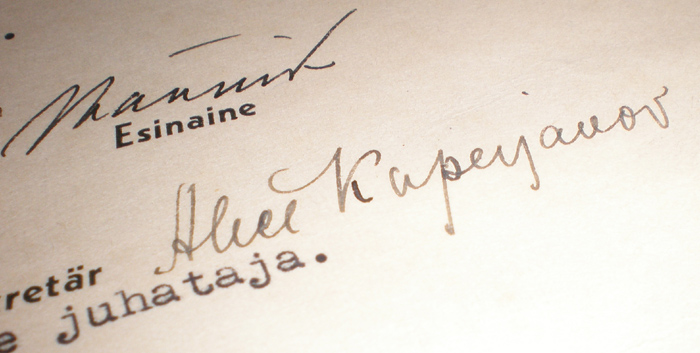 Männik
Esinaine
Alice Kuperjanov
retär
e juhataja.